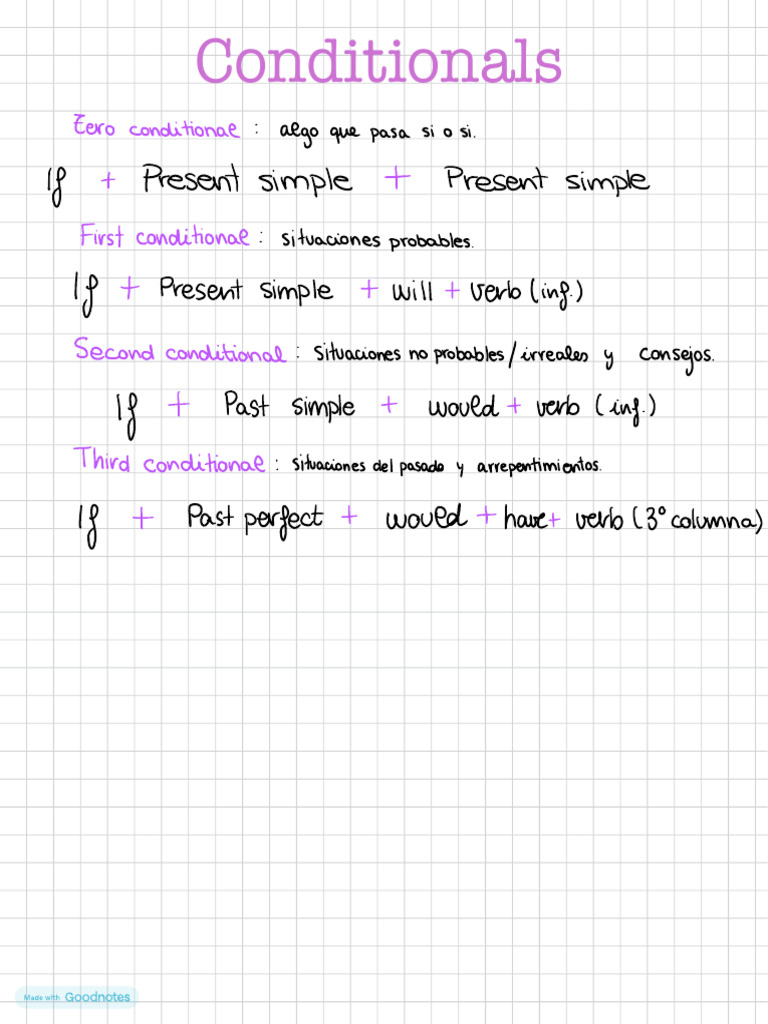 Conditionals
Zero conditional : algo que pasa si o si.
If + Present simple + Present simple
First conditional : situaciones probables.
If + Present simple + will + verb (inf.)
Second conditional : Situaciones no probables/irreales y consejos.
If + Past simple + would + verb (inf.)
Third conditional : situaciones del pasado y arrepentimientos.
If + Past perfect + would + have + verb (3º columna)
Made with Goodnotes